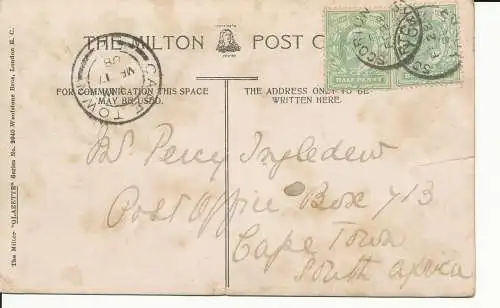 THE MILTON POST C
FOR COMMUNICATION THIS SPACE
MAY BE USED.
THE ADDRESS ONLY TO BE
WRITTEN HERE.
CAPE TOWN
MR 17
08
SCORTON
HALF PENNY
Percy Ingledew
Post Office Box 713
Cape Town
South Africa
The Milton "GLAZETTE" Series No. 2040 Woolstone Bros, London E. C.